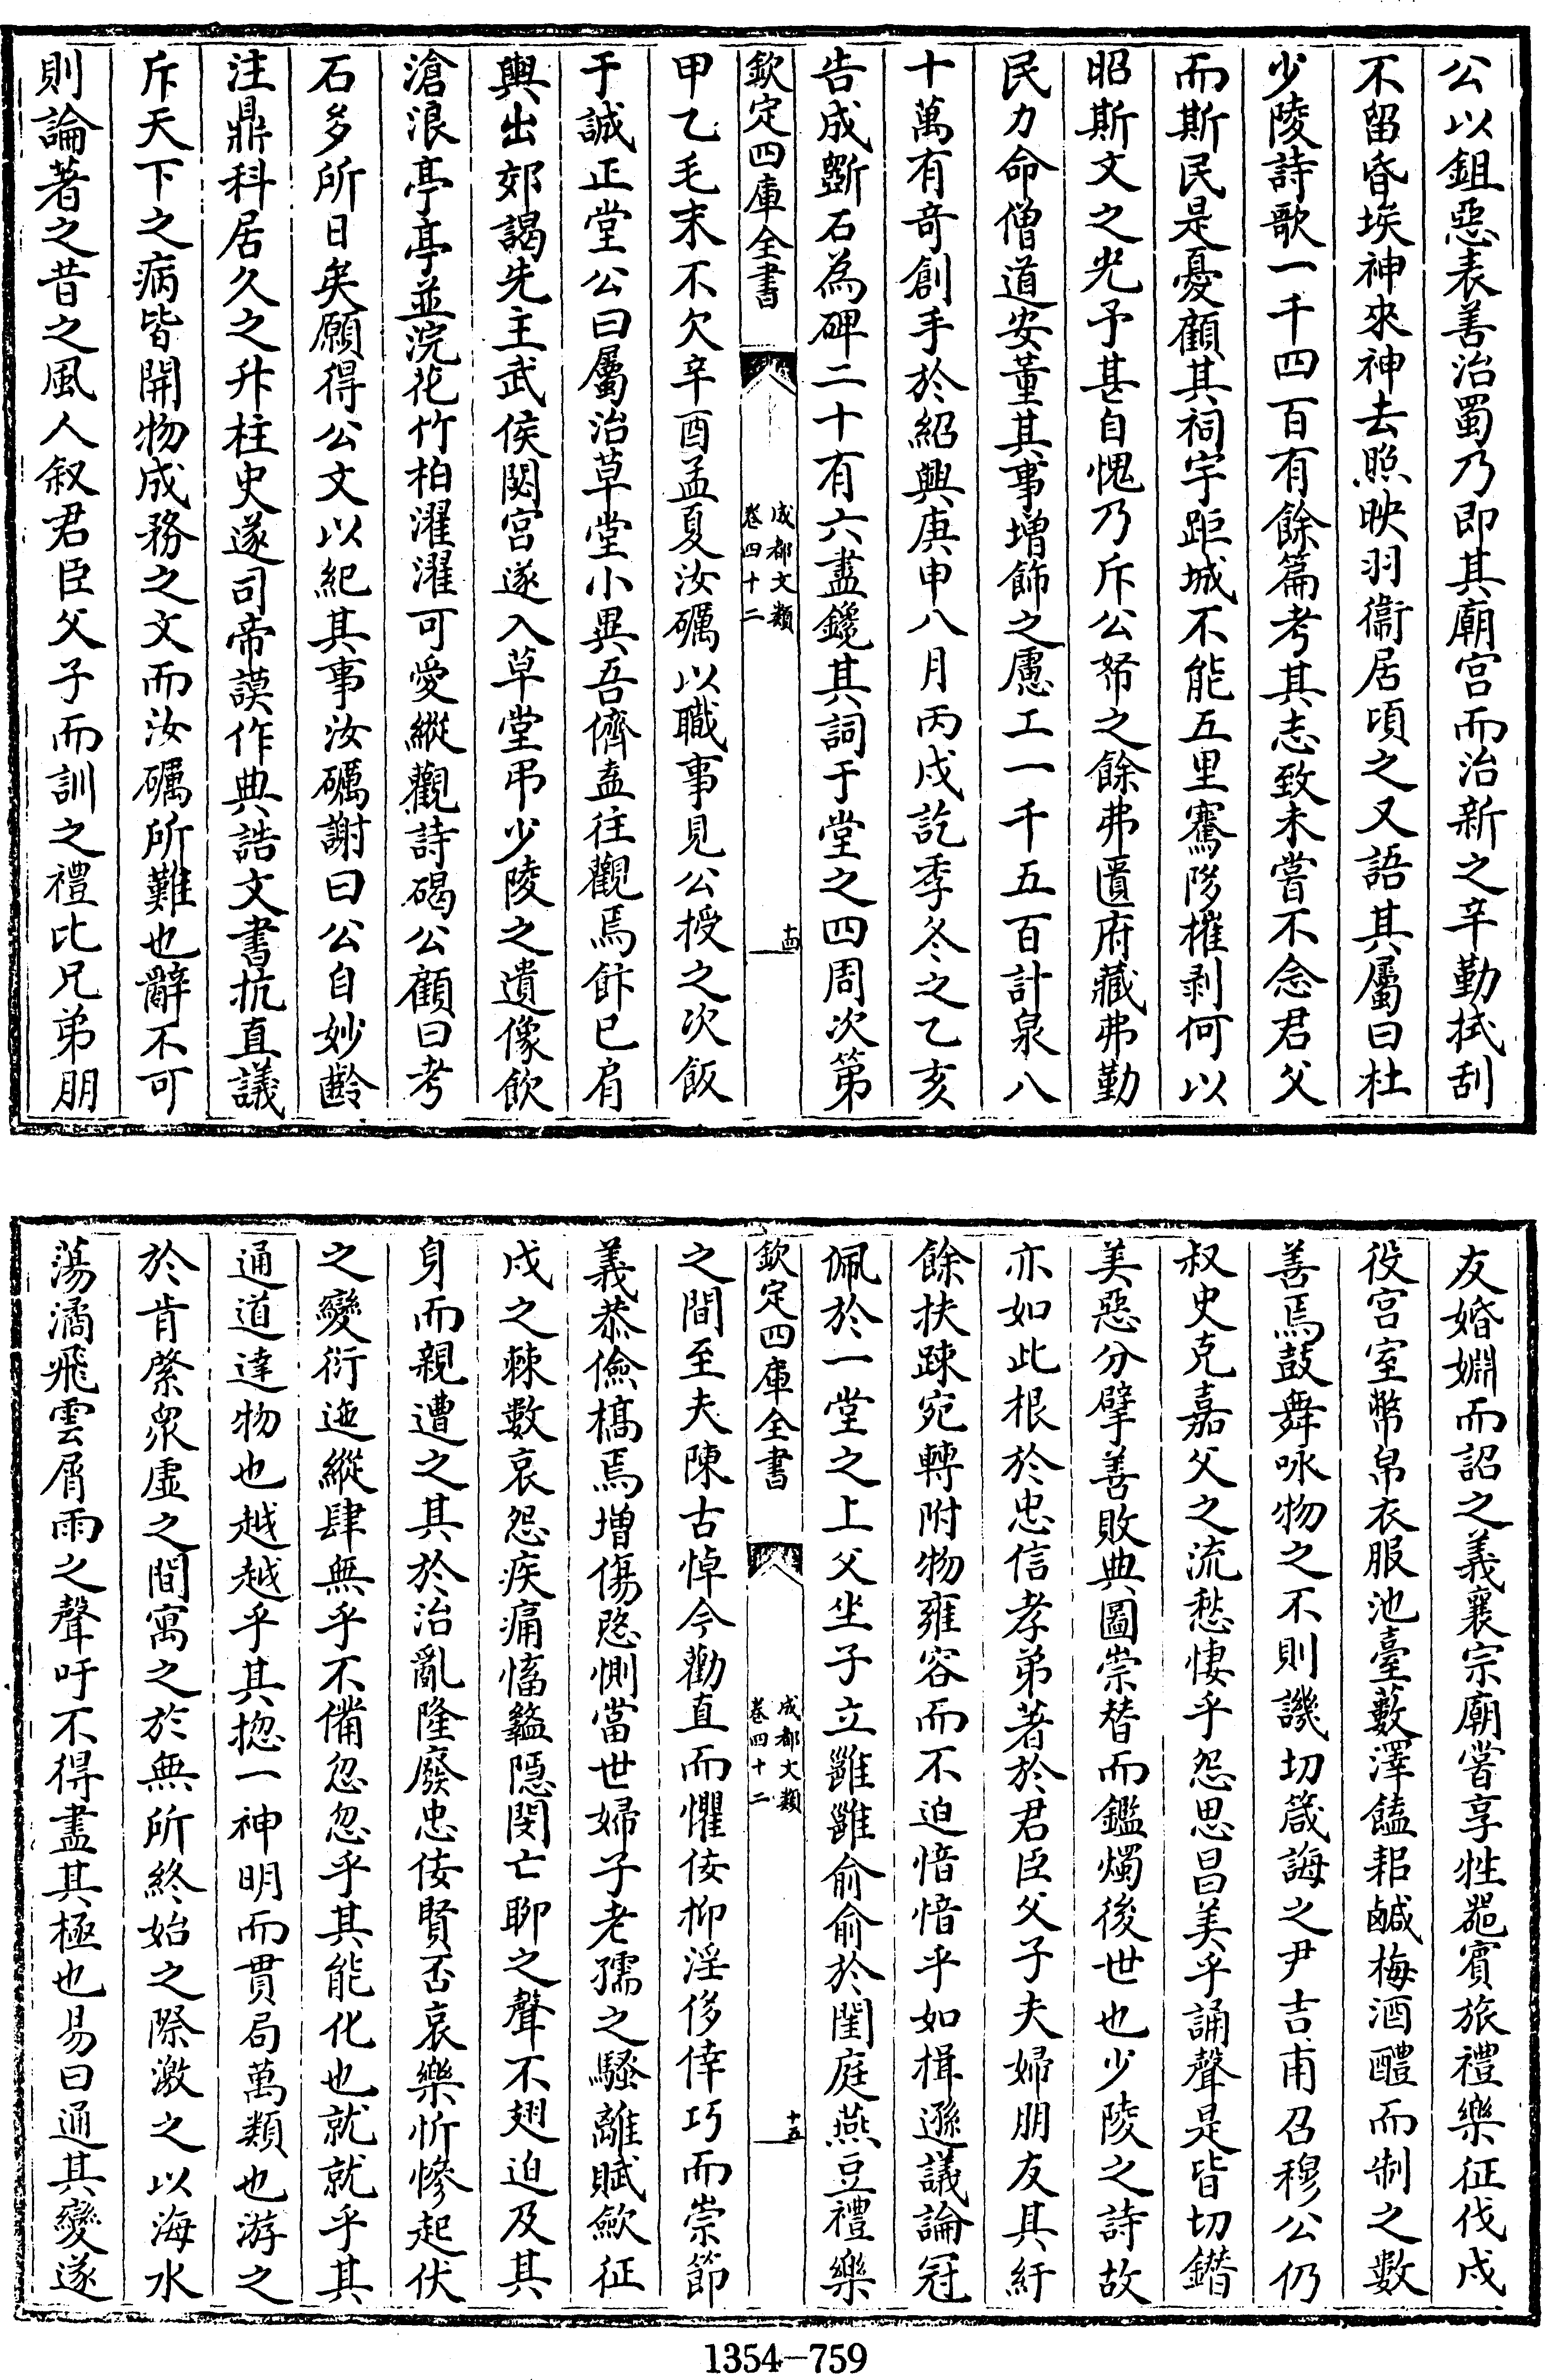 公以鉏惡表善治蜀乃即其廟宫而治新之辛勤拭刮
不留昏埃神來神去照映羽衞居頃之又語其屬曰杜
少陵詩歌一千四百有餘篇考其志致未嘗不念君父
而斯民是憂顧其祠宇距城不能五里騫陊摧剥何以
昭斯文之光予甚自愧乃斥公帑之餘弗匱府藏弗勤
民力命僧道安董其事增飾之慮工一千五百計泉八
十萬有奇創手於紹興庚申八月丙戌訖季冬之乙亥
告成斲石為碑二十有六盡鑱其詞于堂之四周次第
欽定四庫全書
成都文類
卷四十二
十四
甲乙毛末不欠辛酉孟夏汝礪以職事見公授之次飯
于誠正堂公曰屬治草堂小異吾儕盍往觀焉飰已肩
輿出郊謁先主武侯閟宫遂入草堂弔少陵之遺像飲
滄浪亭亭並浣花竹柏濯濯可愛縱觀詩碣公顧曰考
石多所日矣願得公文以紀其事汝礪謝曰公自妙齡
注鼎科居久之升柱史遂司帝謨作典誥文書抗直議
斥天下之病皆開物成務之文而汝礪所難也辭不可
則論著之昔之風人叙君臣父子而訓之禮比兄弟朋
友婚婣而詔之義襄宗廟嘗享牲器賓旅禮樂征伐戍
役宫室幣帛衣服池臺藪澤饁耜鹹梅酒醴而制之數
善焉鼓舞咏物之不則譏切箴誨之尹吉甫召穆公仍
叔史克嘉父之流愁悽乎怨思昌美乎誦聲是皆切鐕
美惡分擘善敗典圖崇替而鑑燭後世也少陵之詩故
亦如此根於忠信孝弟著於君臣父子夫婦朋友其紆
餘扶踈宛轉附物雍容而不迫愔愔乎如揖遜議論冠
佩於一堂之上父坐子立雝雝俞俞於閨庭燕豆禮樂
欽定四庫全書
成都文類
卷四十二
十五
之間至夫陳古悼今勸直而懼佞抑淫侈倖巧而崇節
義恭儉槁焉增傷愍惻當世婦子老孺之騷離賦歛征
戍之棘數哀怨疾痛慉蠿隱閔亡聊之聲不翅迫及其
身而親遭之其於治亂隆廢忠佞賢否哀樂忻慘起伏
之變衍迤縱肆無乎不備忽忽乎其能化也就就乎其
通道達物也越越乎其揔一神明而貫局萬類也游之
於肯綮衆虚之間寓之於無所終始之際激之以海水
蕩潏飛雲屑雨之聲吁不得盡其極也易曰通其變遂
1354—759